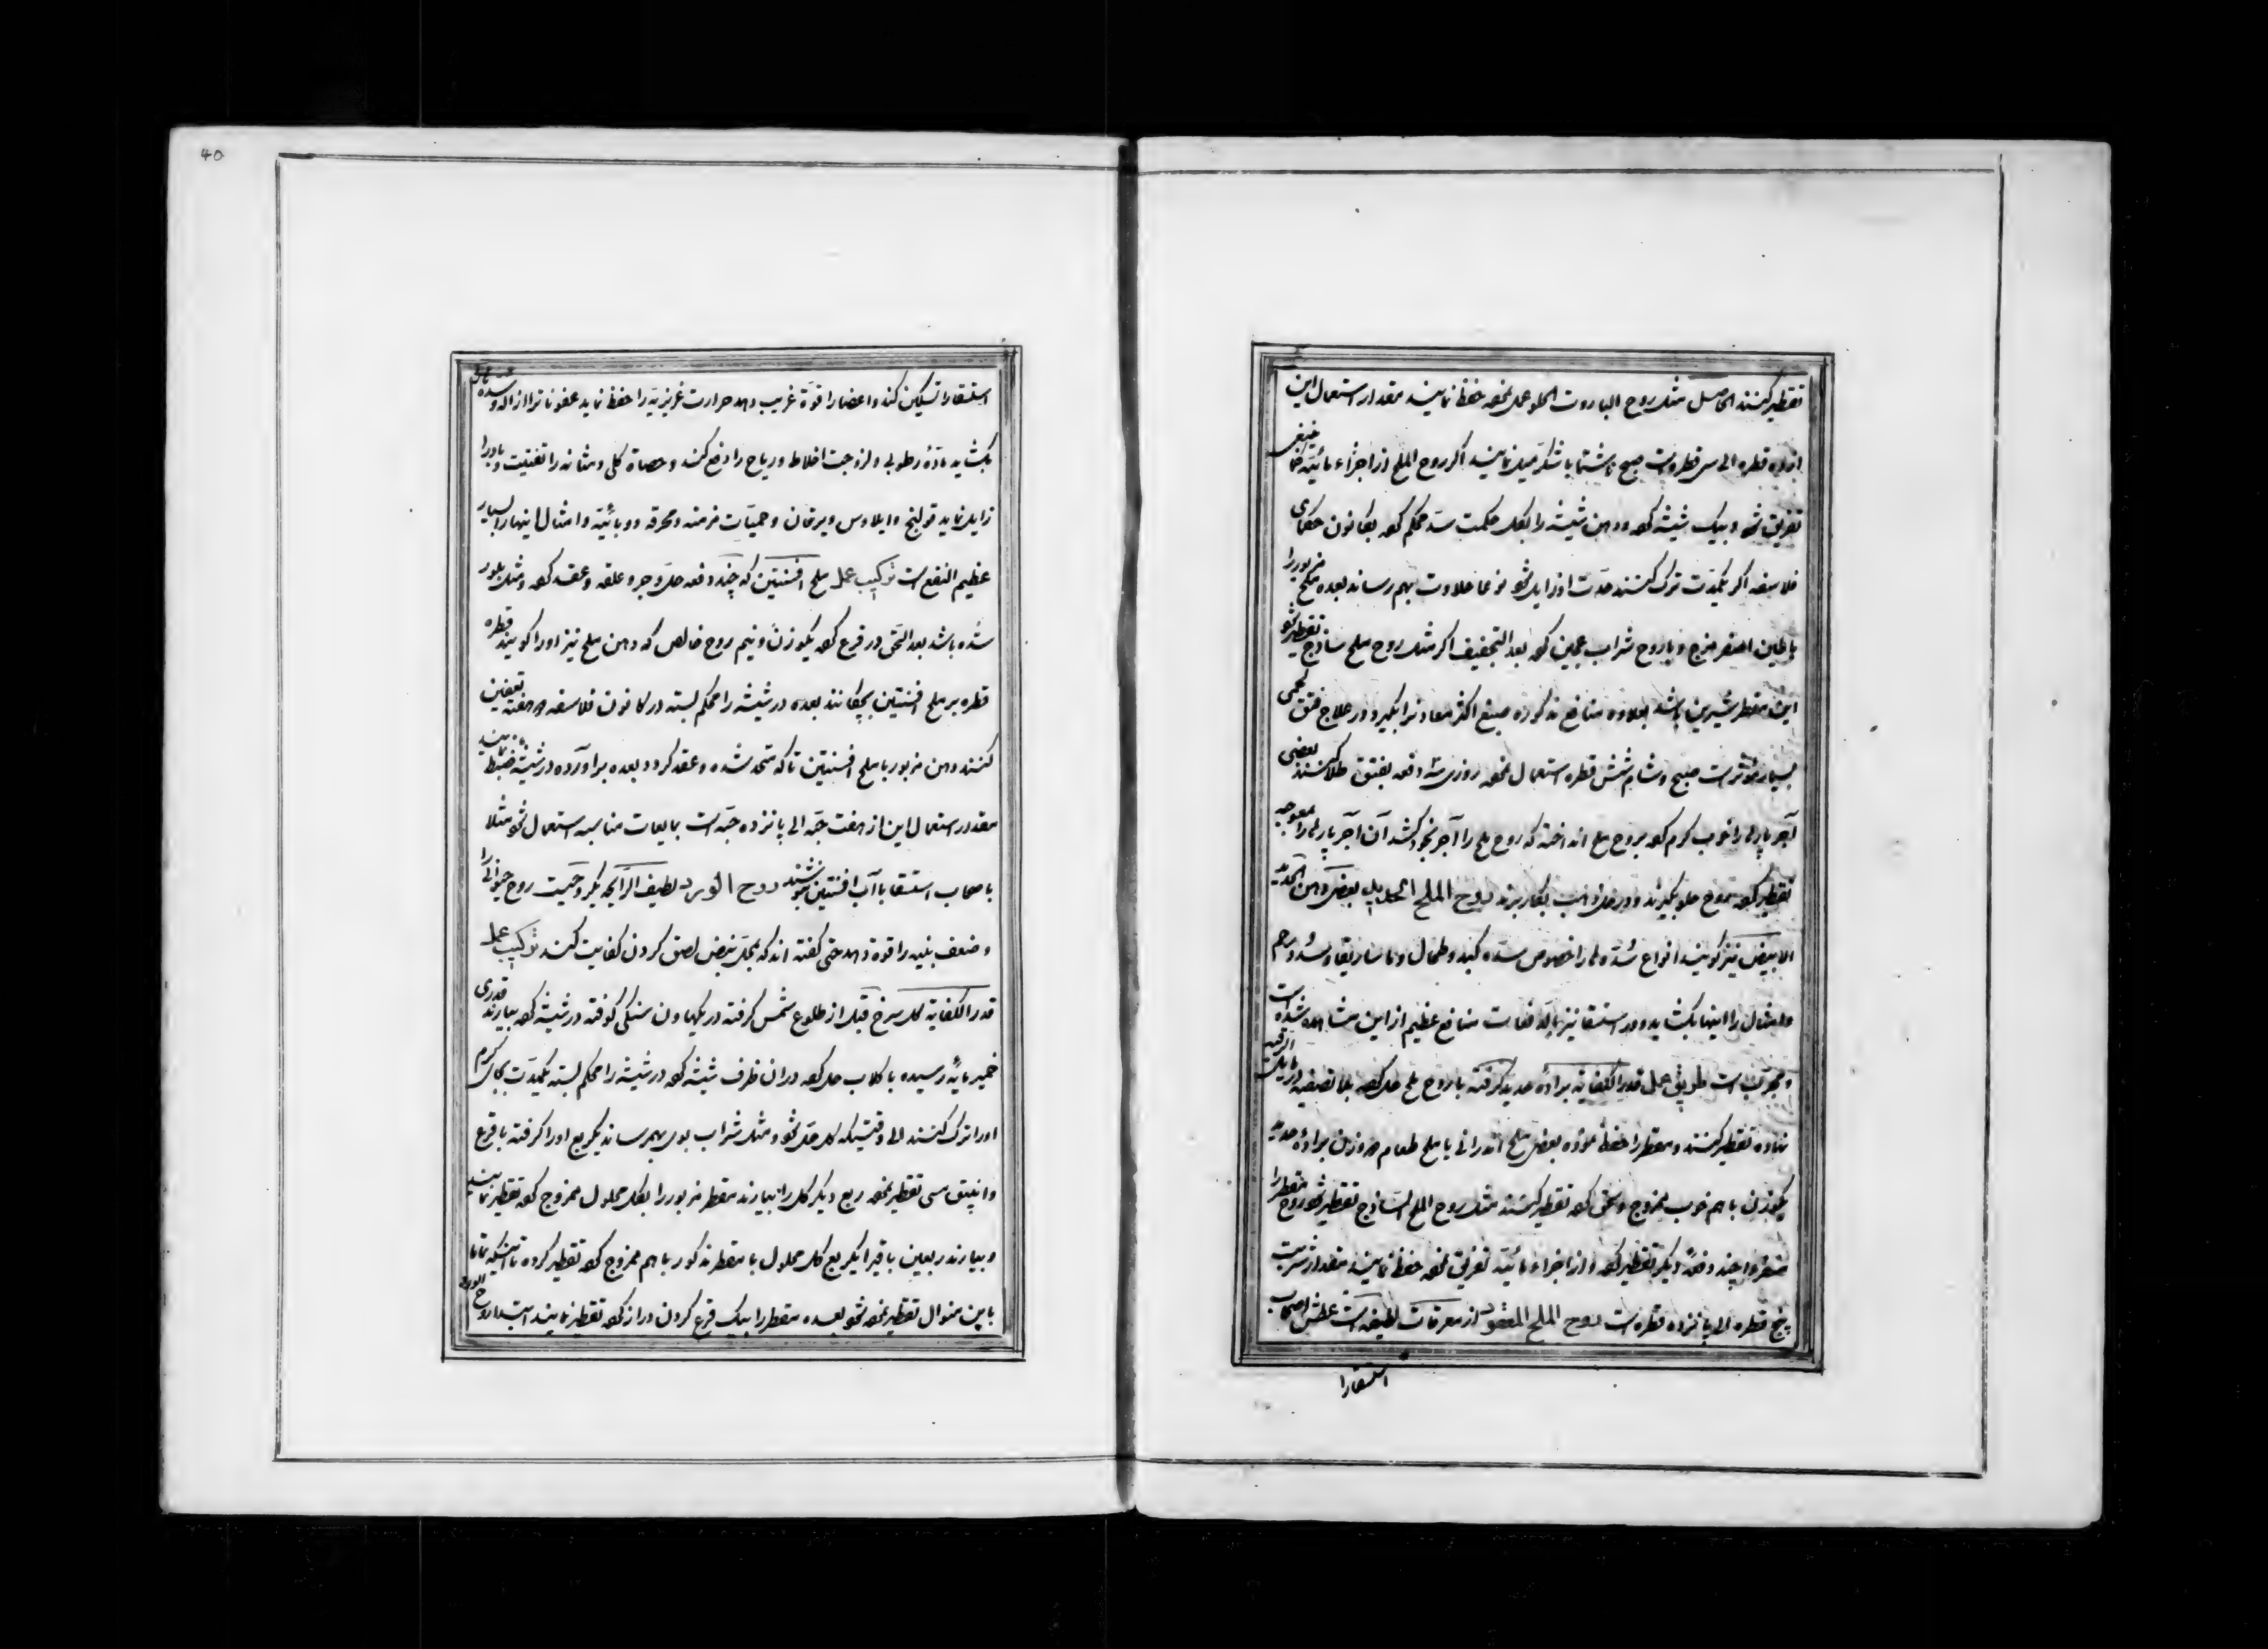 تقطیر کنند الحاصل مثل روح الباروت الحلو عمل نموده حفظ نمایند مقدار استعمال این
از ده قطره الی سی قطره است صبح ناشتا با شکر میل نمایند اگر روح الملح از اجزاء مائیه
تفریق شود و بیک شیشه کرده و دهن شیشه را بگل حکمت سد محکم کرده بکانون حکمای
فلاسفه اگر یکمدت ترک کنند حدت او زایل شود نوعا حلاوت بهم رساند بعده ملح مزبور را
با طین اصفر مزج و با روح شراب عجین کرده بعد التجفیف اگر مثل روح ملح ساذج تقطیر شود
این مقطر شیرین باشد بعلاوه منافع مذکوره صبغ اکثر معادنرا بگیرد و در علاج فتق لحمی
بسیار مؤثر است صبح و شام شش قطره استعمال نموده روزی سه دفعه بفتق طلا کنند بعضی
آجر پاره را خوب گرم کرده بروح ملح انداخته که روح ملح را آجر بخود کشد آن آجر پاره را بمعوجه
تقطیر کرده بروح حلو بگیرند و در بکار برند روح الملح الحدیدی بعضی دهن الحدید
الابیض نیز گویند انواع سده را خصوص سده کبد و طحال و ماساریقا و سده رحم
و امثال اینها را بکشاید و در استسقا نیز بالدفعات منافع عظیم از این مشاهده شده است
و مجرب است طریق عمل قدر الکفایه براده حدید گرفته با روح ملح حل کرده
نهاده تقطیر کنند و مقطر را حفظ نموده بعضی ملح اندرانی یا ملح طعام دو وزن براده حدید
یکوزن با هم خوب ممزوج و سحق کرده تقطیر کنند مثل روح الملح الساذج تقطیر شود روح مقطر را
چند دفعه دیگر تقطیر کرده و از اجزاء مائیه تفریق نموده حفظ نمایند مقدار شربت
پنج قطره الی پانزده قطره است روح الملح المعقود از معرقات لطیفه است عطش اصحاب
استسقارا
40
استسقارا تسکین کند و اعضارا قوة غریب دهد حرارت غریزیه را حفظ نماید عفونات را ازاله و سده
بکشاید ماده رطوبی و لزوجت اخلاط و ریاح را دفع کند و حصاة کلی و مثانه را تفتیت و
زایل نماید قولنج و ایلاوس و یرقان و حمیات مزمنه و محرقه و وبائیه و امثال اینهارا بسیار
عظیم النفع است ترکیب عمل ملح افسنتین که چند دفعه حل و جر و علقه و عقد کرده و مثل بلور
شده باشد بعد السحق در قرع کرده یکوزن و نیم روح خالص که دهن ملح نیز اورا گویند قطره
قطره بر ملح افسنتین بچکانند بعده در شیشه را محکم بسته در کانون فلاسفه دو هفته تعفین
کنند دهن مزبور با ملح افسنتین تا که متحد شده و عقد گردد بعده برآورده در شیشه ضبط نمایند
مقدار استعمال این از هفت حبه الی پانزده حبه است بمایعات مناسبه استعمال شود مثلا
باصحاب استسقا با آب افسنتین بنوشند روح الورد لطیف الرایحه بگیر و حمیت روح حیوانی را
و ضعف بنیه را قوة دهد حتی گفته اند که بمحل نبض لصق کردن کفایت کند ترکیب عمل
قدر الکفایه گل سرخ قبل از طلوع شمس گرفته در یکهاون سنگی کوفته در شیشه کرده بیارند قدری
خمیر مایه رسیده با گلاب حل کرده در ان ظرف شیشه کرده در شیشه را محکم بسته یکمدت بجای گرم
اورا ترک کنند الی وقتیکه گل حل شود و مثل شراب بوی بهم رساند یکربع اورا گرفته با قرع
و انبیق مسی تقطیر نموده ربع دیگر گل را بیارند مقطر مزبور را بگل محلول ممزوج کرده تقطیر نمایند
و بیارند ربعین باقیرا یکربع گل محلول با مقطر مذکور با هم ممزوج کرده تقطیر کرده تا اینکه تماما
باین منوال تقطیر نموده شود بعده مقطر را بیک قرع گردن دراز کرده تقطیر نمایند ابتدا روح الورد